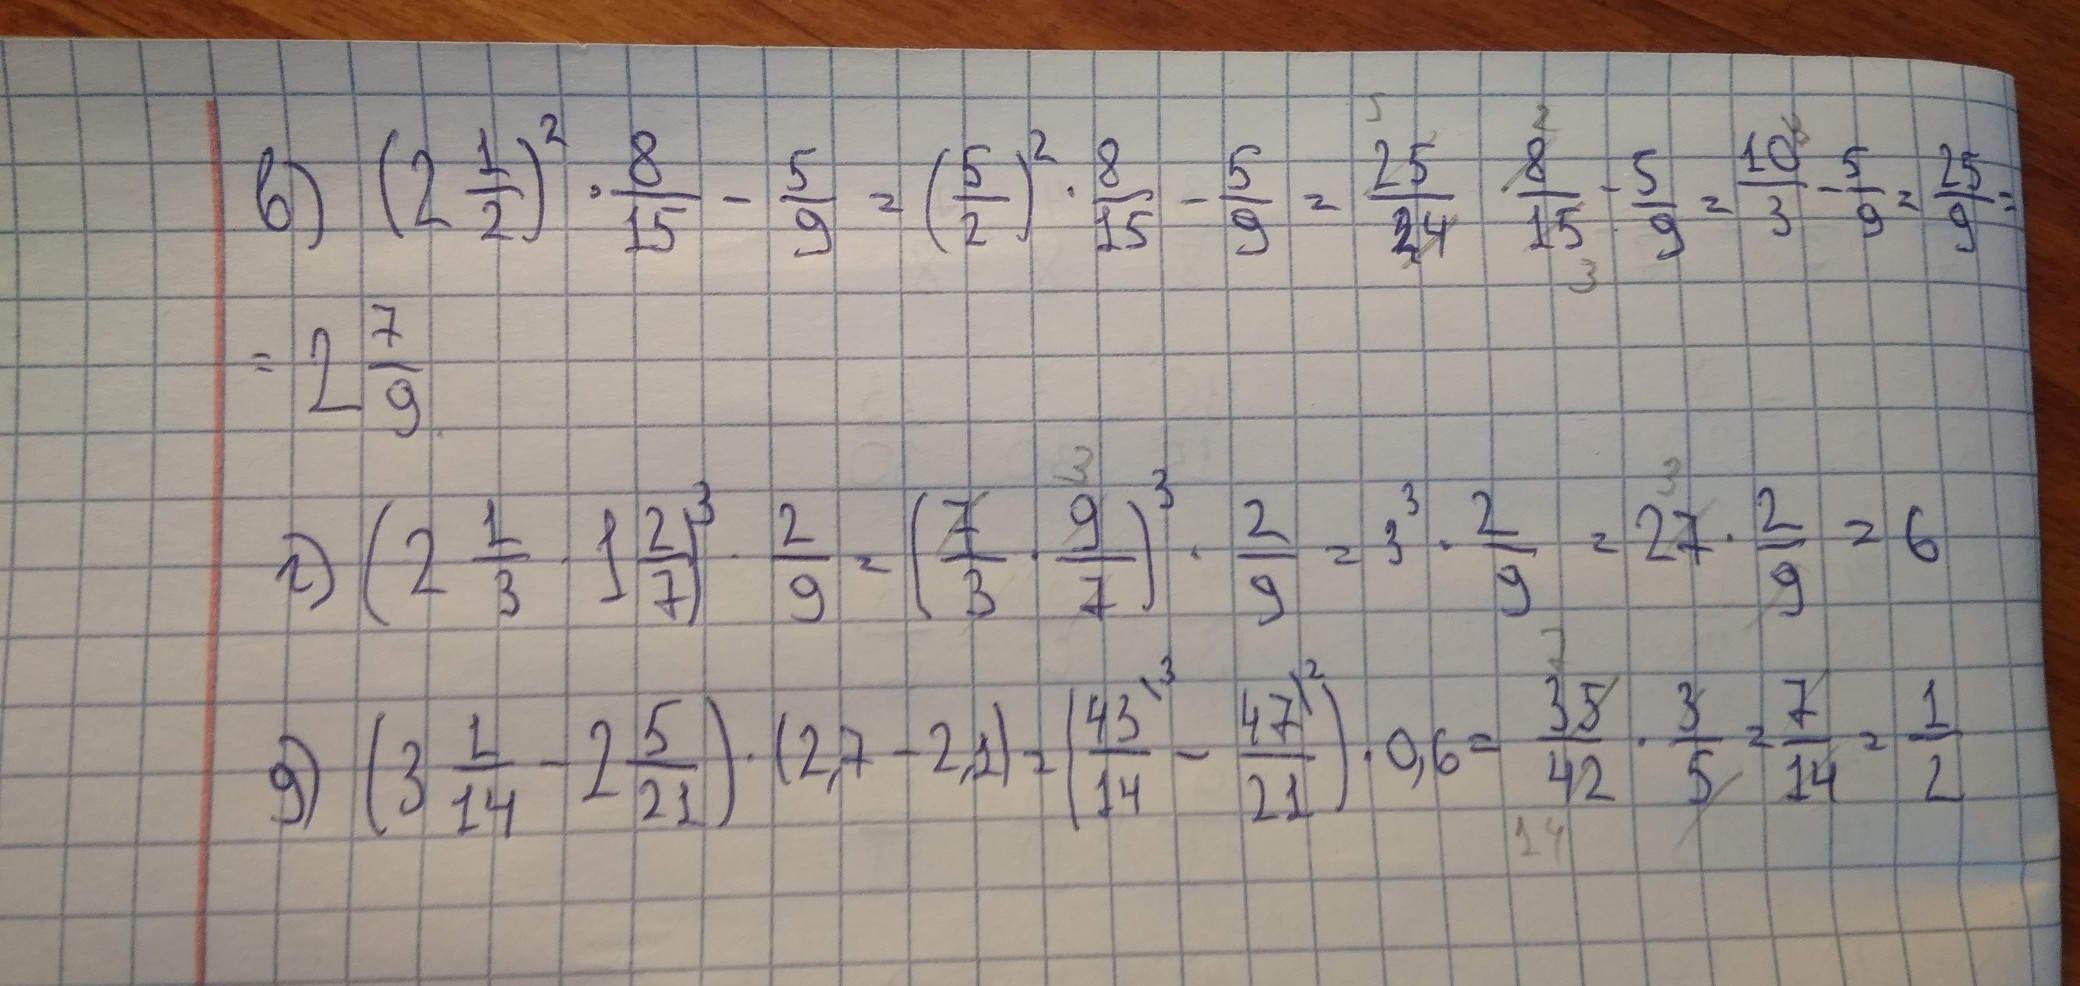 в) (2 1/2)² · 8/15 - 5/9 = (5/2)² · 8/15 - 5/9 = 25/4 8/15 - 5/9 = 10/3 - 5/9 = 25/9 =
= 2 7/9
г) (2 1/3 · 1 2/7)³ · 2/9 = (7/3 · 9/7)³ · 2/9 = 3³ · 2/9 = 27 · 2/9 = 6
д) (3 1/14 - 2 5/21) · (2,7 - 2,1) = (43/14 \3 - 47/21 \2) · 0,6 = 35/42 · 3/5 = 7/14 = 1/2